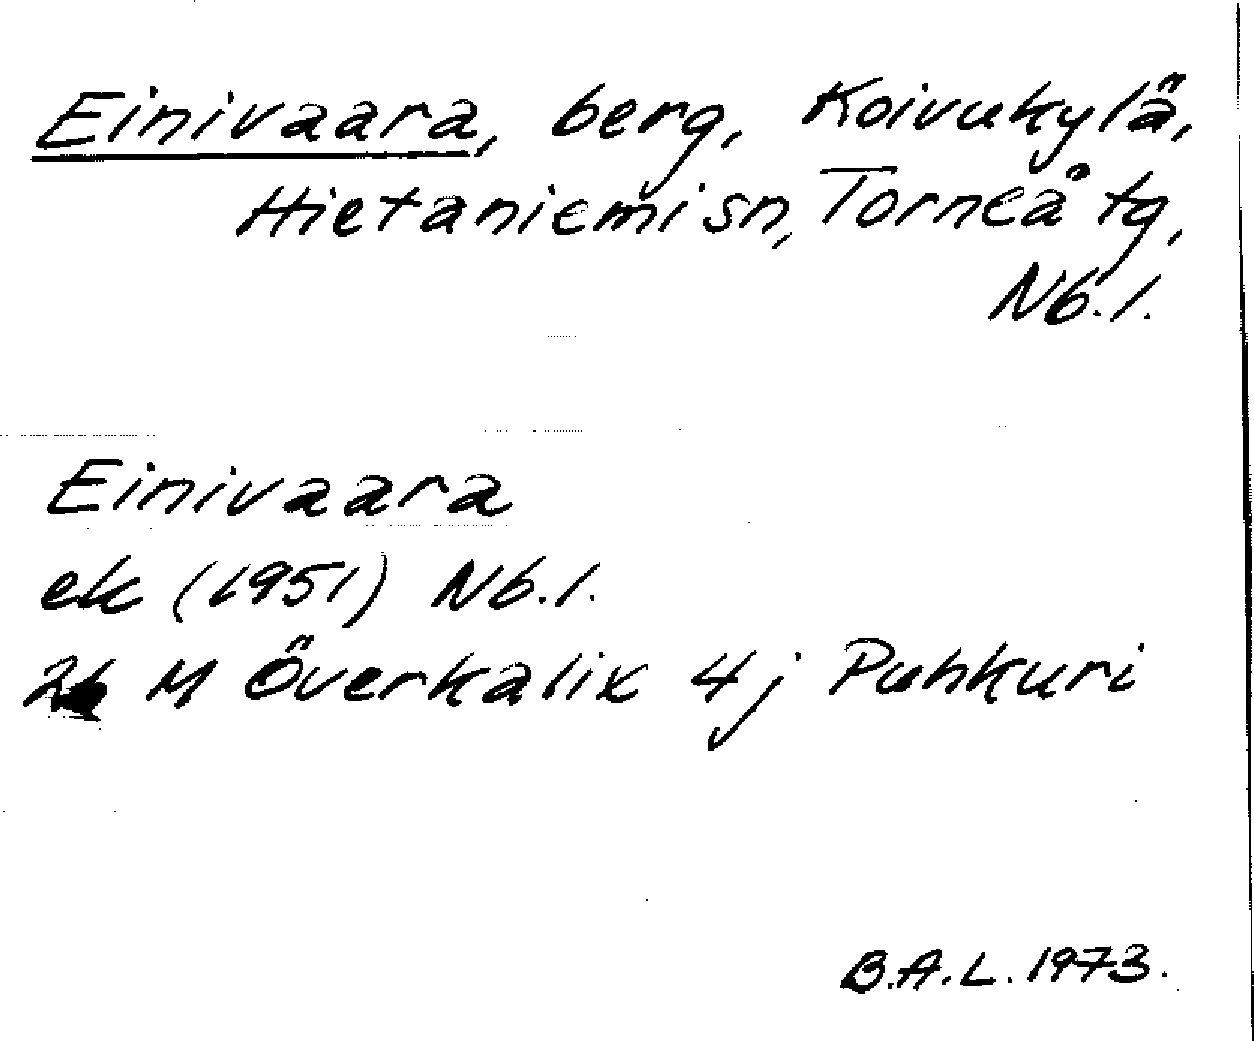 Einivaara, berg, Koivukylä,
Hietaniemi sn, Torneå tg,
Nb.l.
Einivaara
ek (1951) Nb.l.
M Överkalix 4j Puhkuri
B.A.L. 1973.